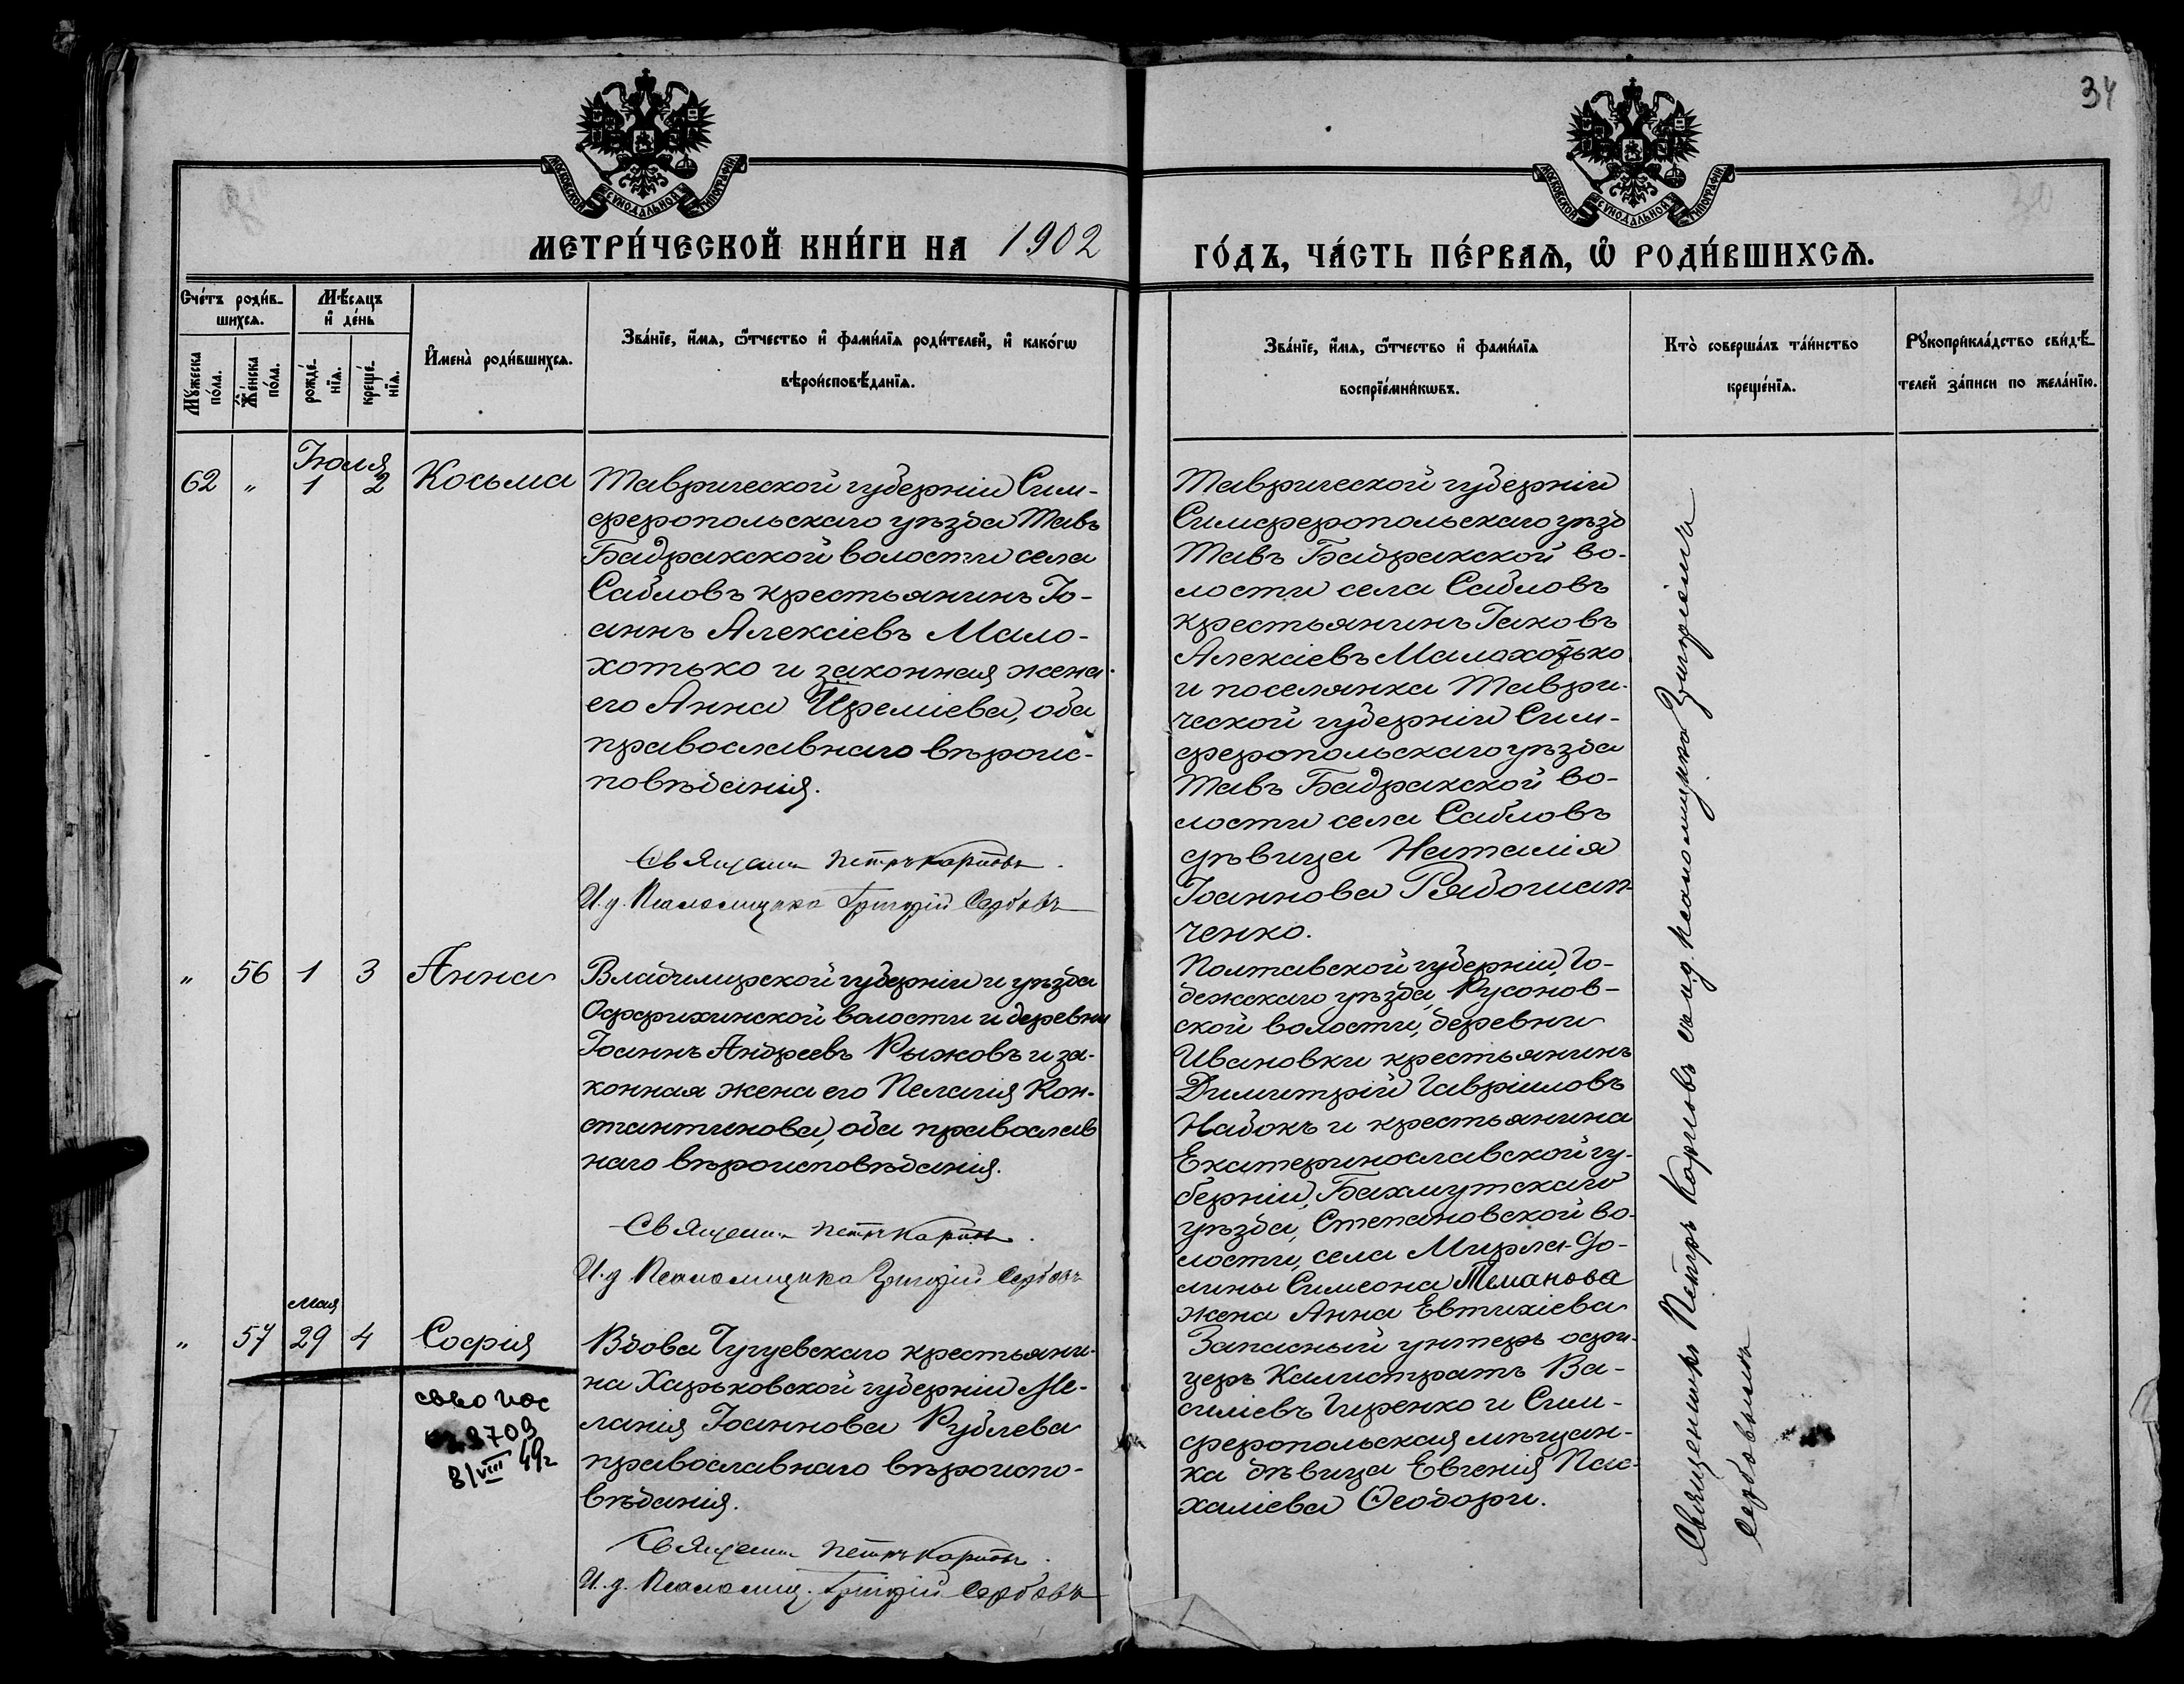 34
МОСКОВСКОЙ СѴНОДАЛЬНОЙ ТИПОГРАФІИ
МОСКОВСКОЙ СѴНОДАЛЬНОЙ ТИПОГРАФІИ
МЕТРИ́ЧЕСКОЙ КНИ́ГИ НА 1902
ГО́ДЪ, ЧА́СТЬ ПЕ́РВАѦ, Ѡ҆ РОДИ́ВШИХСѦ.
Сче́тъ роди́в-
шихсѧ.
Мѣ́сѧцъ
и҆ де́нь
Мꙋ́жеска
по́ла.
Же́нска
по́ла.
рожде́-
нїѧ.
креще́-
нїѧ.
И҆мена̀ роди́вшихсѧ.
Зва́нїе, и҆́мѧ, ѻ҆́тчество и҆ фами́лїѧ роди́телей, и҆ како́гѡ
вѣроисповѣ́данїѧ.
Зва́нїе, и҆́мѧ, ѻ҆́тчество и҆ фами́лїѧ
воспрїе́мникѡвъ.
Кто̀ соверша́лъ та́инство
креще́нїѧ.
Рꙋкоприкла́дство свидѣ́-
телей за́писи по жела́нїю.
Іюля
62 " 1 2 Косьма
Таврической губерніи Сим-
феропольскаго уѣзда Тавъ
Бадракской волости села
Сабловъ крестьянинъ Іо-
аннъ Алексіевъ Мало-
хотько и законная жена
его Анна Іереміева, оба
православнаго вѣроис-
повѣданія.
Священн. Петръ Карповъ.
И. д. Псаломщика Григорій Сербовъ
Таврической губерніи
Симферопольскаго уѣзд
Тавъ Бадракской во-
лости села Сабловъ
крестьянинъ Іаковъ
Алексіевъ Малохотько
и поселянка Таври-
ческой губерніи Сим-
феропольскаго уѣзда
Тавъ Бадракской во-
лости села Сабловъ
дѣвица Наталія
Іоаннова Рябошап-
ченко.
" 56 1 3 Анна
Владимирской губерніи и уѣзда
Оффрихинской волости и деревни
Іоаннъ Андреевъ Рыжовъ и за-
конная жена его Пелагія Кон-
стантинова, оба православ
наго вѣроисповѣданія.
Священн. Петръ Карповъ.
И. д. Псаломщика Григорій Сербовъ
Полтавской губерніи, Го-
дежскаго уѣзда, Русонов-
ской волости, деревни
Ивановки крестьянинъ
Димитрій Гавріиловъ
Набокъ и крестьянина
Екатеринославской гу-
берніи, Бахмутскаго
уѣзда, Степановской во-
лости, села Мирла-До-
лины Симеона Тманова
жена Анна Евтихіева
Мая
" 57 29 4 Софія
Вдова Чугуевскаго крестьяни-
на Харьковской губерніи Ме-
ланія Іоаннова Рублева
православнаго вѣроиспо-
вѣданія.
Священн. Петръ Карповъ.
И. д. Псаломщ. Григорій Сербовъ
3709
8/VIII 49г
Запасный унтеръ офи-
церъ Калистратъ Ва-
силіевъ Гиренко и Сим-
феропольская мѣщан-
ка дѣвица Евгенія Пас-
халіева Ѳеодори.
Священникъ Петръ Карповъ и и. д. Псаломщика Григоріемъ
Сербовымъ